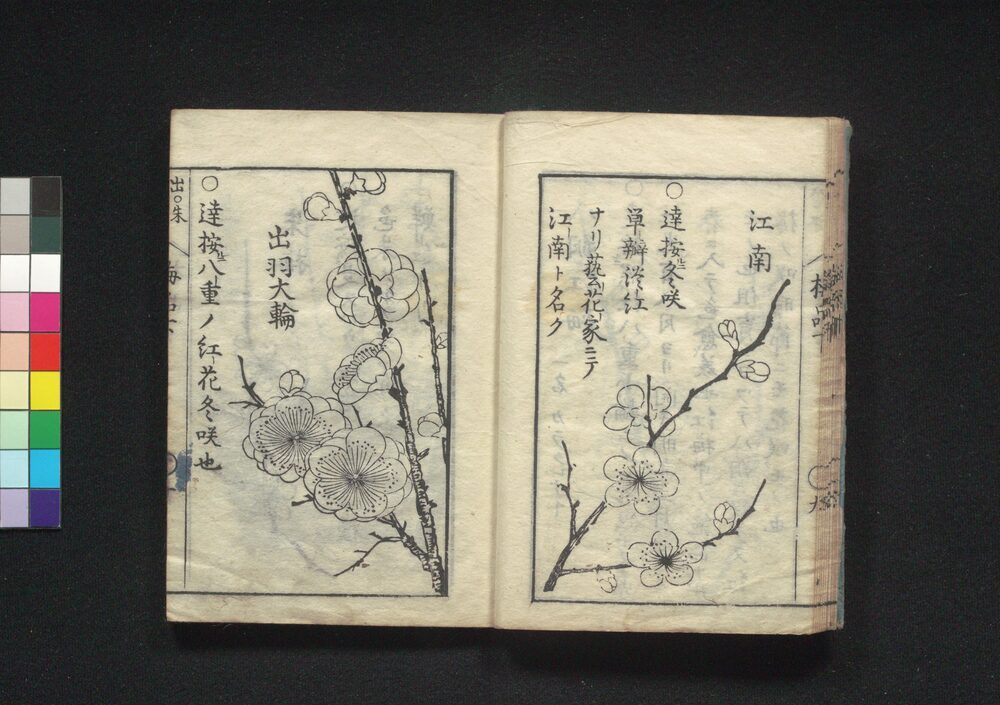 江南
○達按ニ冬咲
単瓣淡紅
ナリ藝花家ニテ
江南ト名ク
出羽大輪
○達按ニ八重ノ紅花冬咲也
出○朱